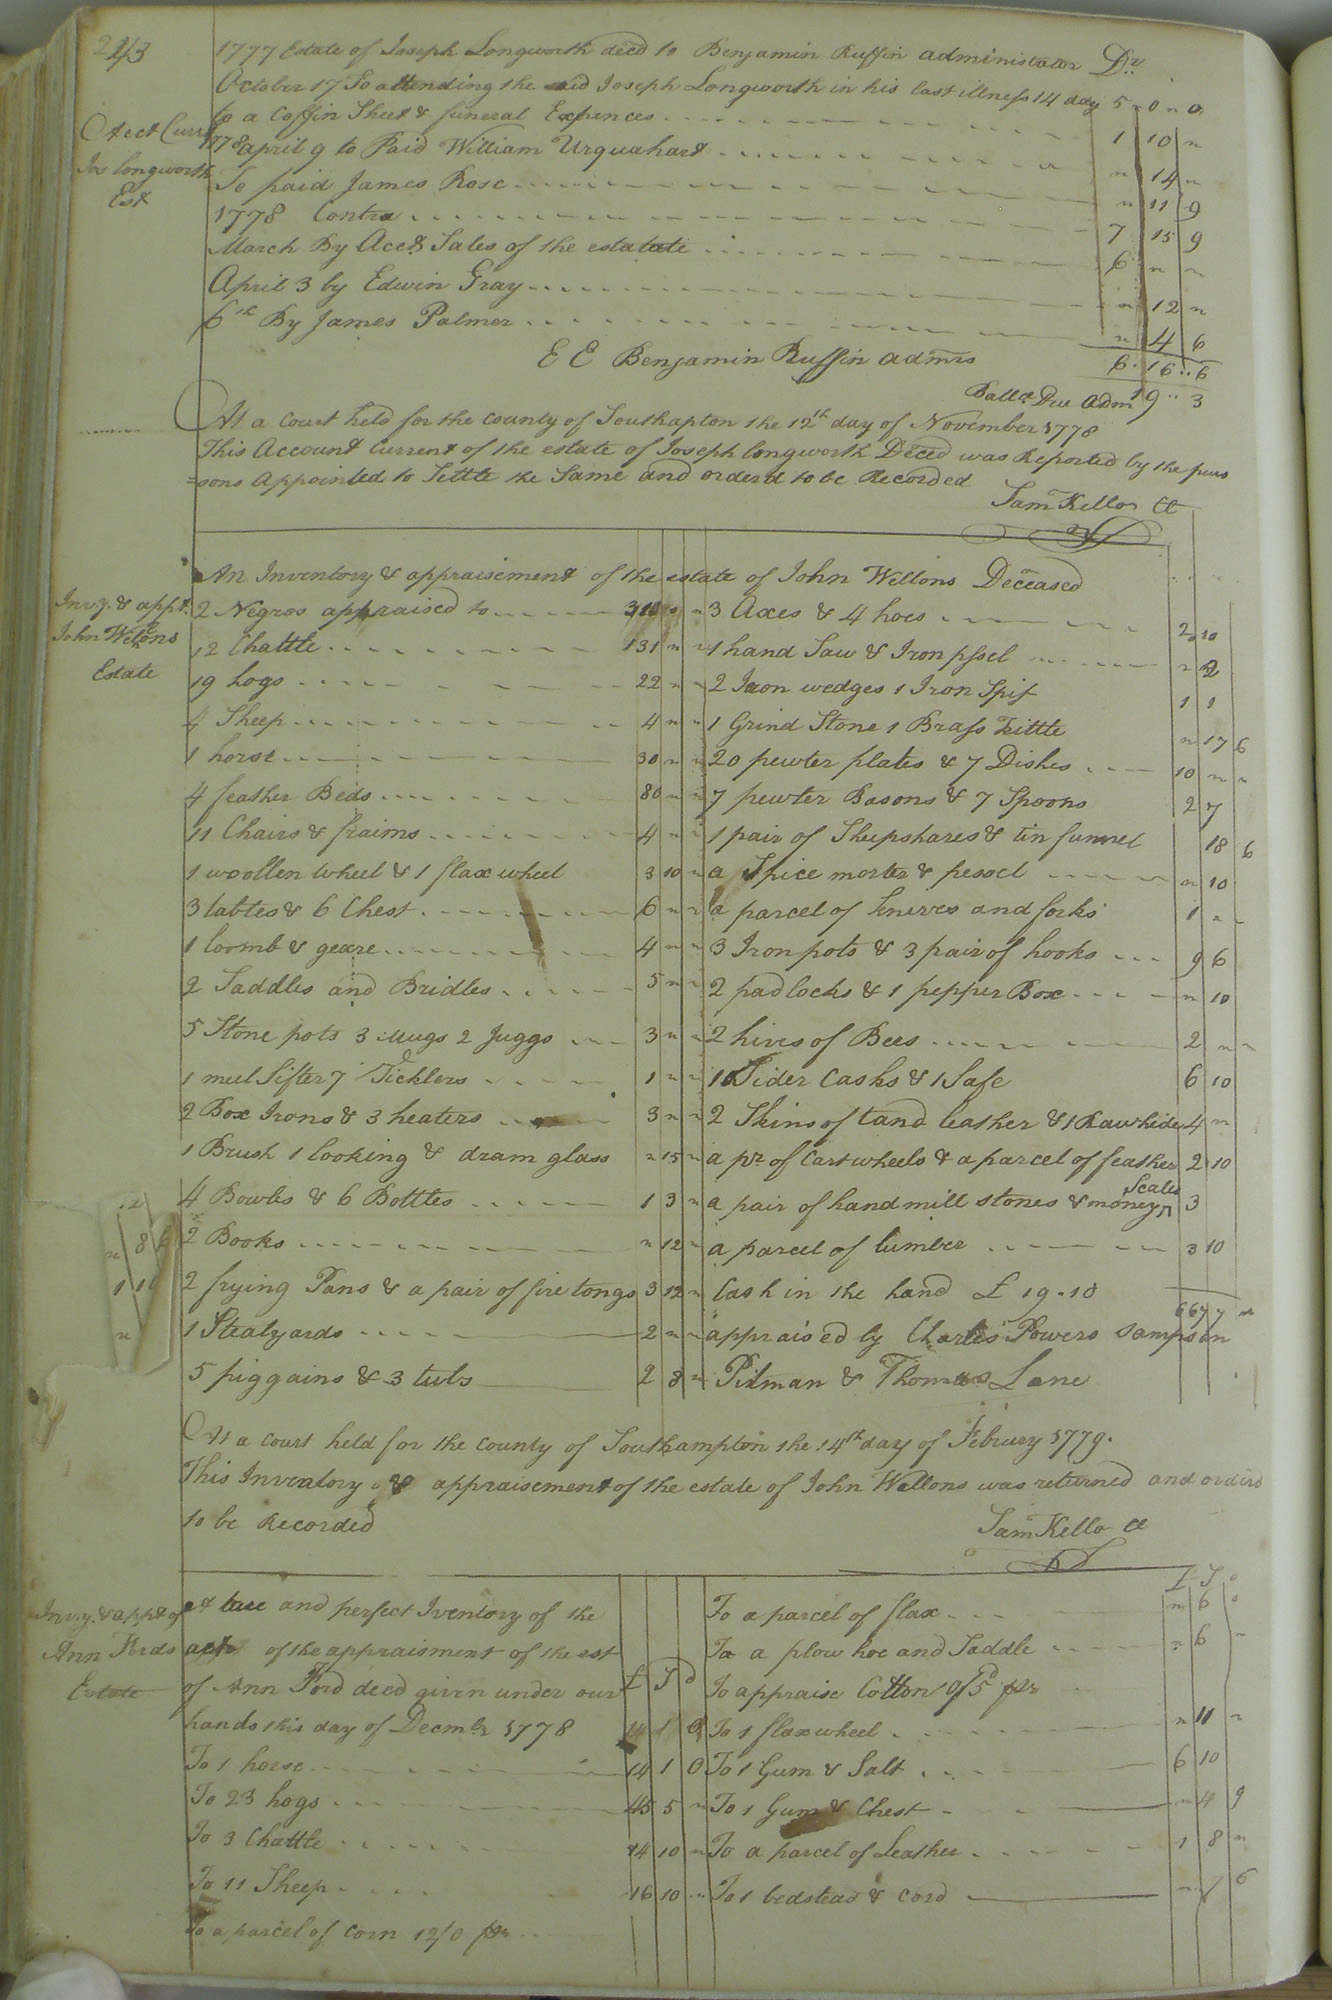 223
1777 Estate of Joseph Longworth deced to Benjamin Ruffin administrator Dr
October 17 To attending the sd Joseph Longworth in his last illness 14 day 5 " 0 " 0
to a Coffin Sheet & funeral Expences 1 10 "
Acct Curr
Jos longworth
Est
1778 april 9 to Paid William Urquahart " 14 "
To paid James Rose " 11 9
1778 Contra 7 15 9
March By Acct Sales of the estatate 6 " "
April 3 by Edwin Gray " 12 "
6th By James Palmer " 4 6
E E Benjamin Ruffin admrs 6 " 16 " 6
Balla Due adm 19 " 3
At a Court held for the County of Southapton the 12th day of November 1778
This Account Current of the estate of Joseph longworth Deced was Reported by the pers
=sons Appointed to Settle the Same and orderd to be Recorded
Sam Kello Ct
An Inventory & appraisement of the estate of John Wellons Deceased
Invy. & appt.
John Welons
Estate
2 Negros appraised to " "
12 Chattle 131 " "
19 hogs 22 " "
4 Sheep 4 " "
1 horse 30 " "
4 feather Beds 80 " "
11 Chairs & fraims 4 " "
1 woollen wheel & 1 flax wheel 3 10 "
3 tables & 6 Chest 6 " "
1 loomb & geare 4 " "
2 Saddles and Bridles 5 " "
5 Stone pots 3 Mugs 2 Juggs 3 " "
1 meel Sifter 7 Ticklers 1 " "
2 Box Irons & 3 heaters 3 " "
1 Brush 1 looking & dram glass " 15 "
4 Bowles & 6 Bottles 1 3 "
2 Books " 12 "
2 frying Pans & a pair of fire tongs 3 12 "
1 Stealyards 2 " "
5 piggains & 3 tubs 2 8 "
3 Axes & 4 hoes 2 10
1 hand Saw & Iron pssel " 2
2 Iron wedges 1 Iron Spit 1 1
1 Grind Stone 1 Brass Kittle " 17 6
20 pewter plates & 7 Dishes 10 " "
7 pewter Basons & 7 Spoons 2 7
1 pair of Sheepshares & tin funnel 18 6
a Spice morter & pessel " 10
a parcel of knives and forks 1 " "
3 Iron pots & 3 pair of hooks 9 6
2 padlocks & 1 pepper Box " 10
2 hives of Bees 2 " "
10 Sider Casks & 1 Safe 6 10
2 Skins of tand leather & 1 Rawhide 4 "
a pr. of Cart wheels & a parcel of feather 2 10
a pair of hand mill stones & money Scales 3
a parcel of lumber 3 10
Cash in the hand £ 19 " 10
667 7 "
appraised by Charles Powers Sampson
Pitman & Thomas Lane
At a Court held for the County of Southampton the 14th day of Februry 1779.
This Inventory & appraisement of the estate of John Wellons was returned and orderd
to be Recorded
Sam Kello Ct
Invy. & appt of
Ann Fords
Estate
and perfect Iventory of the
of the appraisment of the est
of Ann Ford deced given under our
hands this day of Decmbr 1778
£ S D
To 1 horse 14 1 0
To 23 hogs 45 5 "
To 3 Chattle 14 10 "
To 11 Sheep 16 10
To a parcel of Corn 12/0 pr
£ S
To a parcel of flax " 6 0
To a plow hoe and Saddle " 6 "
To appraise Cotton of 5d pr
To 1 flax wheel " 11 "
To 1 Gum & Salt 6 10
To 1 Gum & Chest " 4 9
To a parcel of Leather 1 8 "
To 1 bedstead & Cord " 6